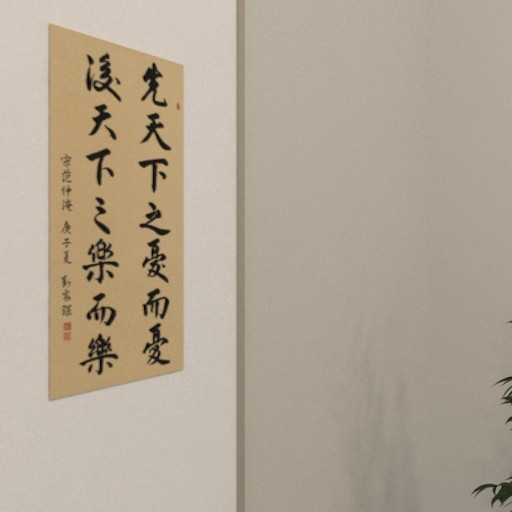 先天下之憂而憂
後天下之樂而樂
宋范仲淹 庚子夏 刘家琛